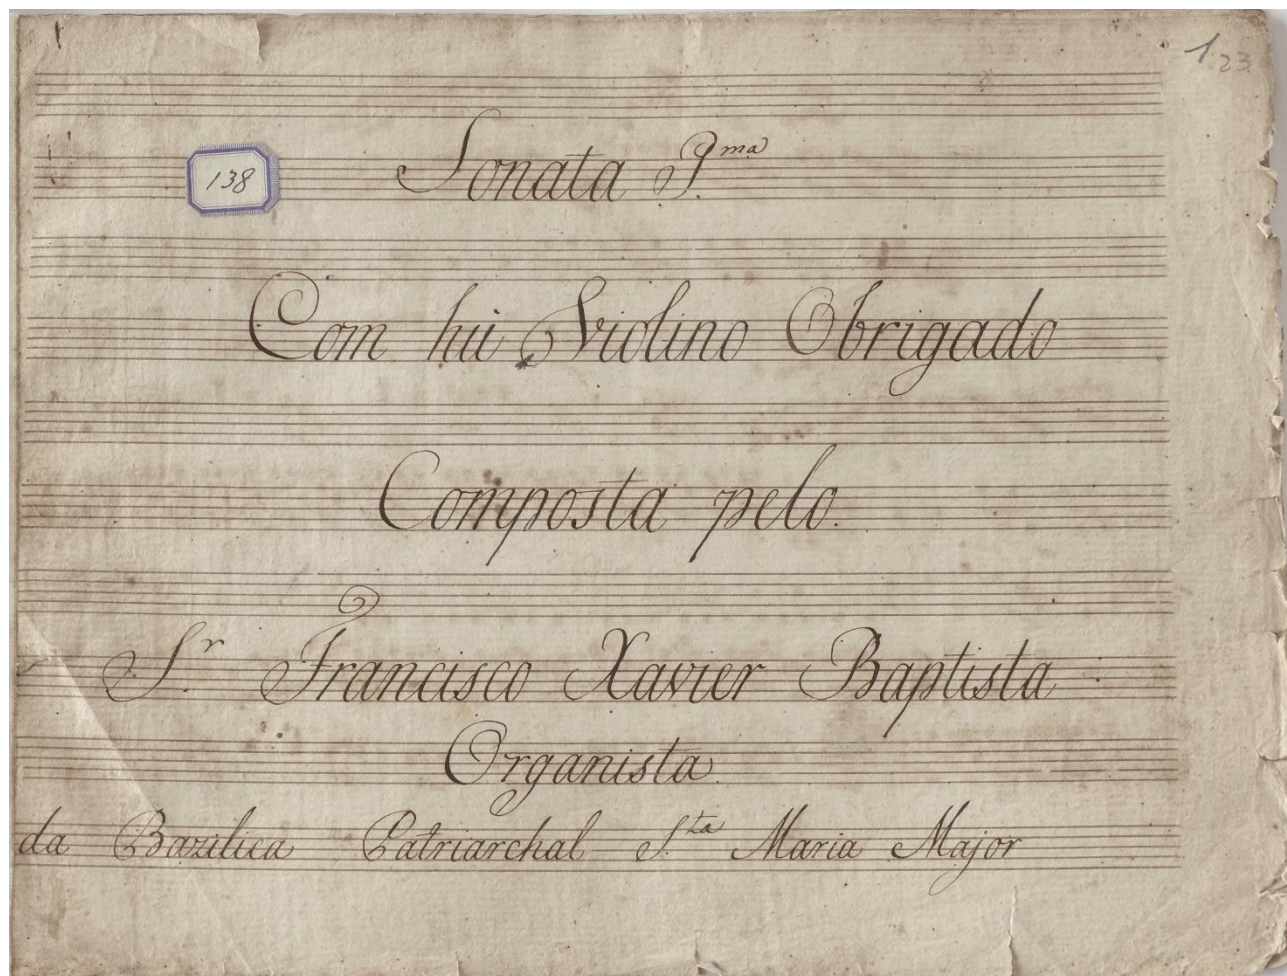 1.23.
138
Sonata P.ma
Com hũ Violino Obrigado
Composta pelo.
S.r Francisco Xavier Baptista
Organista.
da Bazilica Patriarchal S.ta Maria Major